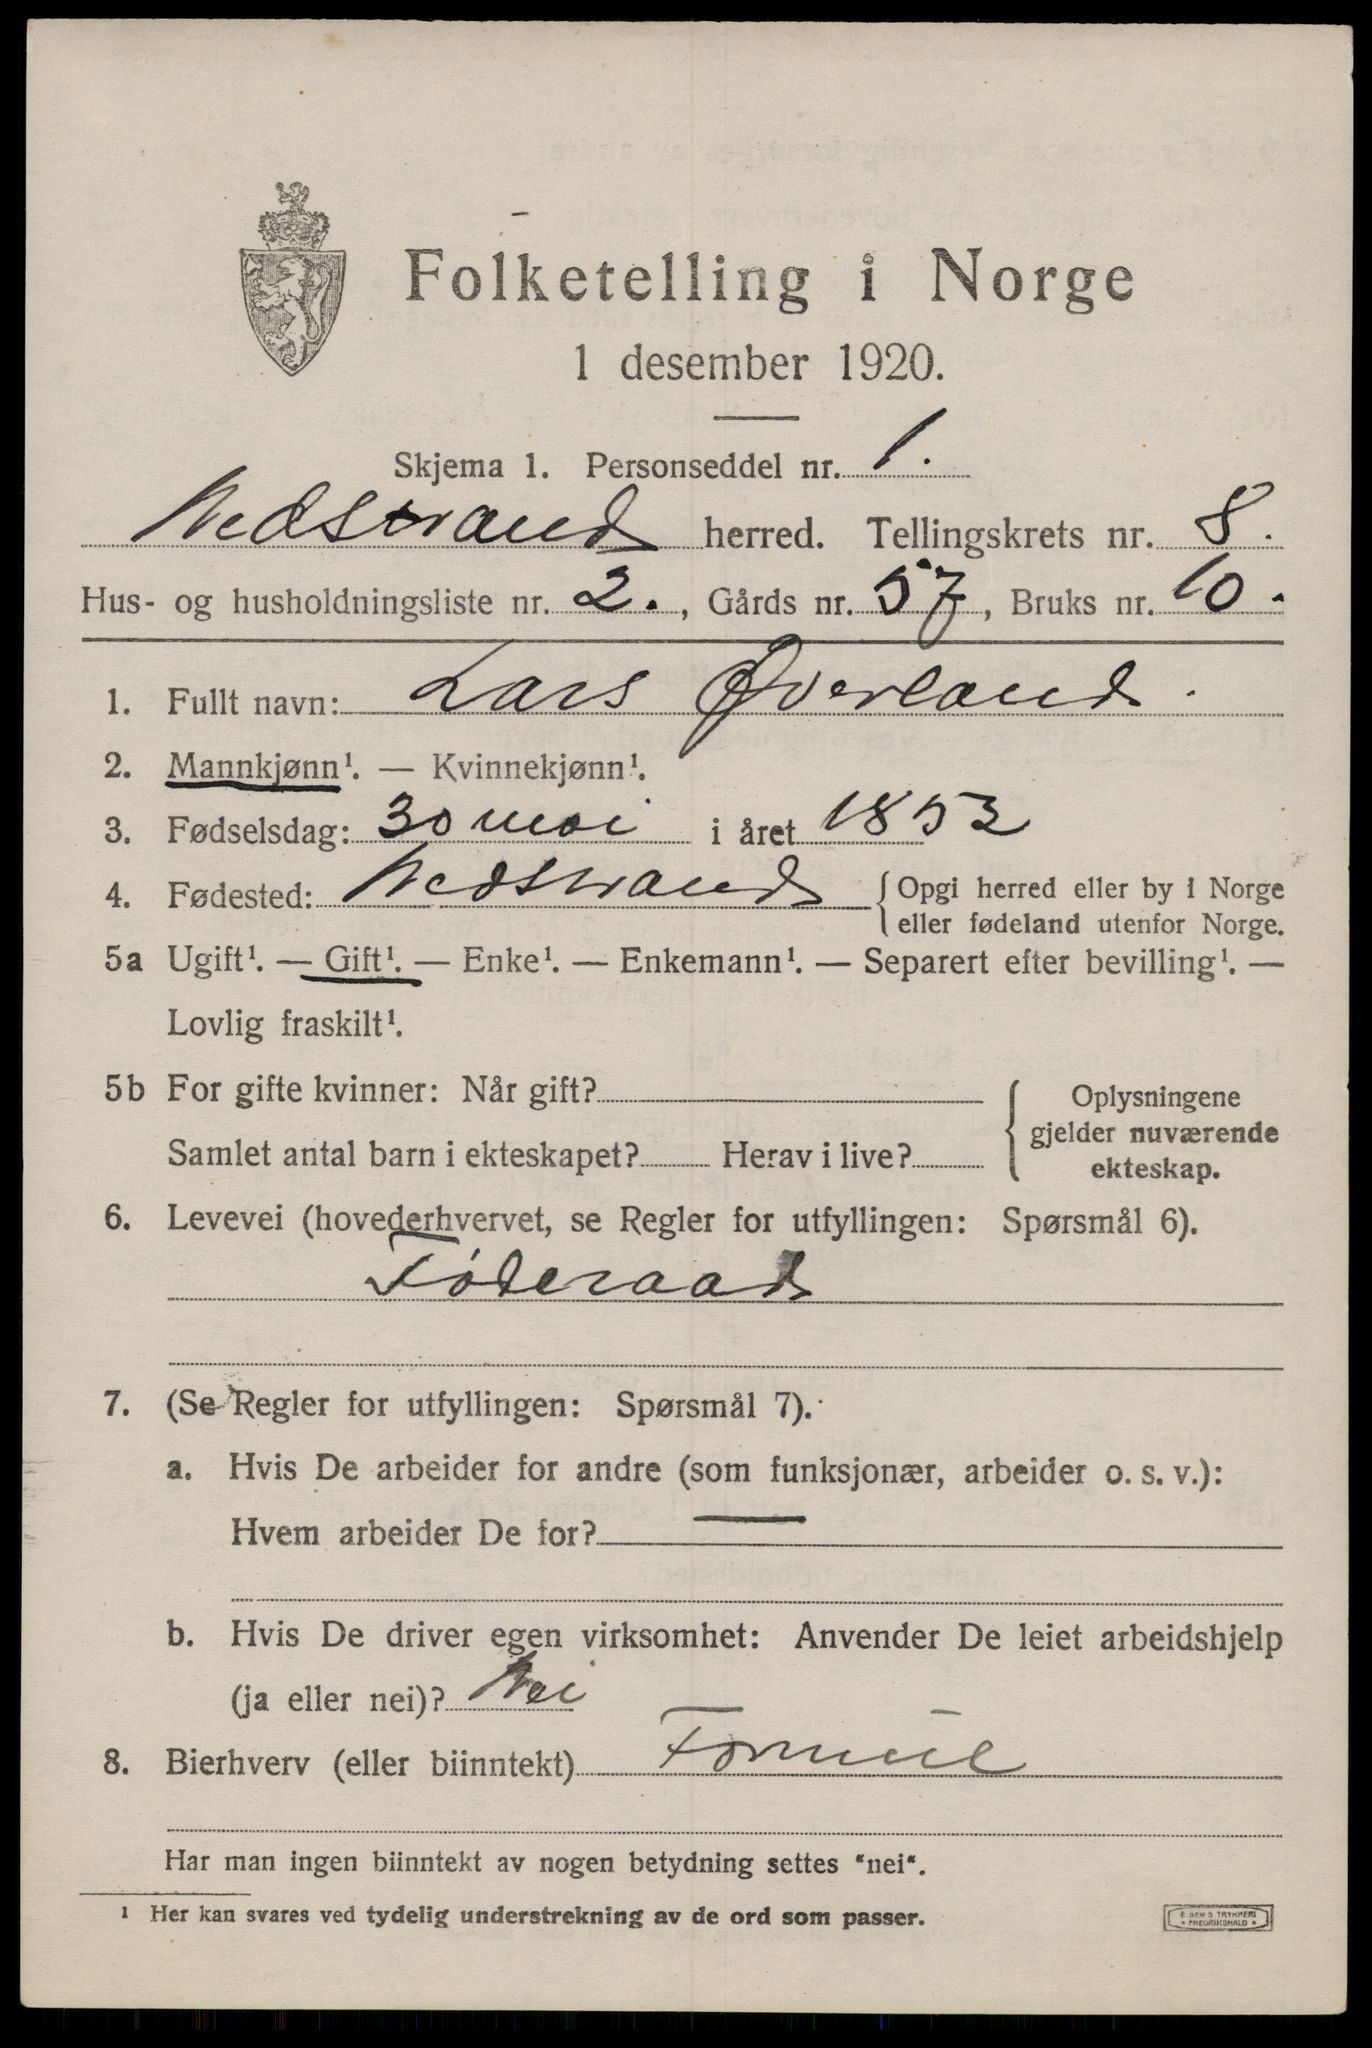 Folketelling i Norge
1 desember 1920.
Skjema 1. Personseddel nr. 1.
Nedstrand herred. Tellingskrets nr. 8.
Hus- og husholdningsliste nr. 2., Gårds nr. 57, Bruks nr. 10.
1. Fullt navn: Lars Øverland.
2. Mannkjønn¹. — Kvinnekjønn¹.
3. Fødselsdag: 30 mai i året 1853
4. Fødested: Nedstrand {Opgi herred eller by i Norge
eller fødeland utenfor Norge.
5a Ugift¹. — Gift¹. — Enke¹. — Enkemann¹. — Separert efter bevilling¹. —
Lovlig fraskilt¹.
5b For gifte kvinner: Når gift?
Samlet antal barn i ekteskapet? Herav i live?
Oplysningene
gjelder nuværende
ekteskap.
6. Levevei (hovederhvervet, se Regler for utfyllingen: Spørsmål 6).
Føderaad
7. (Se Regler for utfyllingen: Spørsmål 7).
a. Hvis De arbeider for andre (som funksjonær, arbeider o. s. v.):
Hvem arbeider De for? —
b. Hvis De driver egen virksomhet: Anvender De leiet arbeidshjelp
(ja eller nei)? Nei
8. Bierhverv (eller biinntekt) Formue
Har man ingen biinntekt av nogen betydning settes "nei".
¹ Her kan svares ved tydelig understrekning av de ord som passer.
E. SEM'S TRYKKERI
• FREDRIKSHALD •